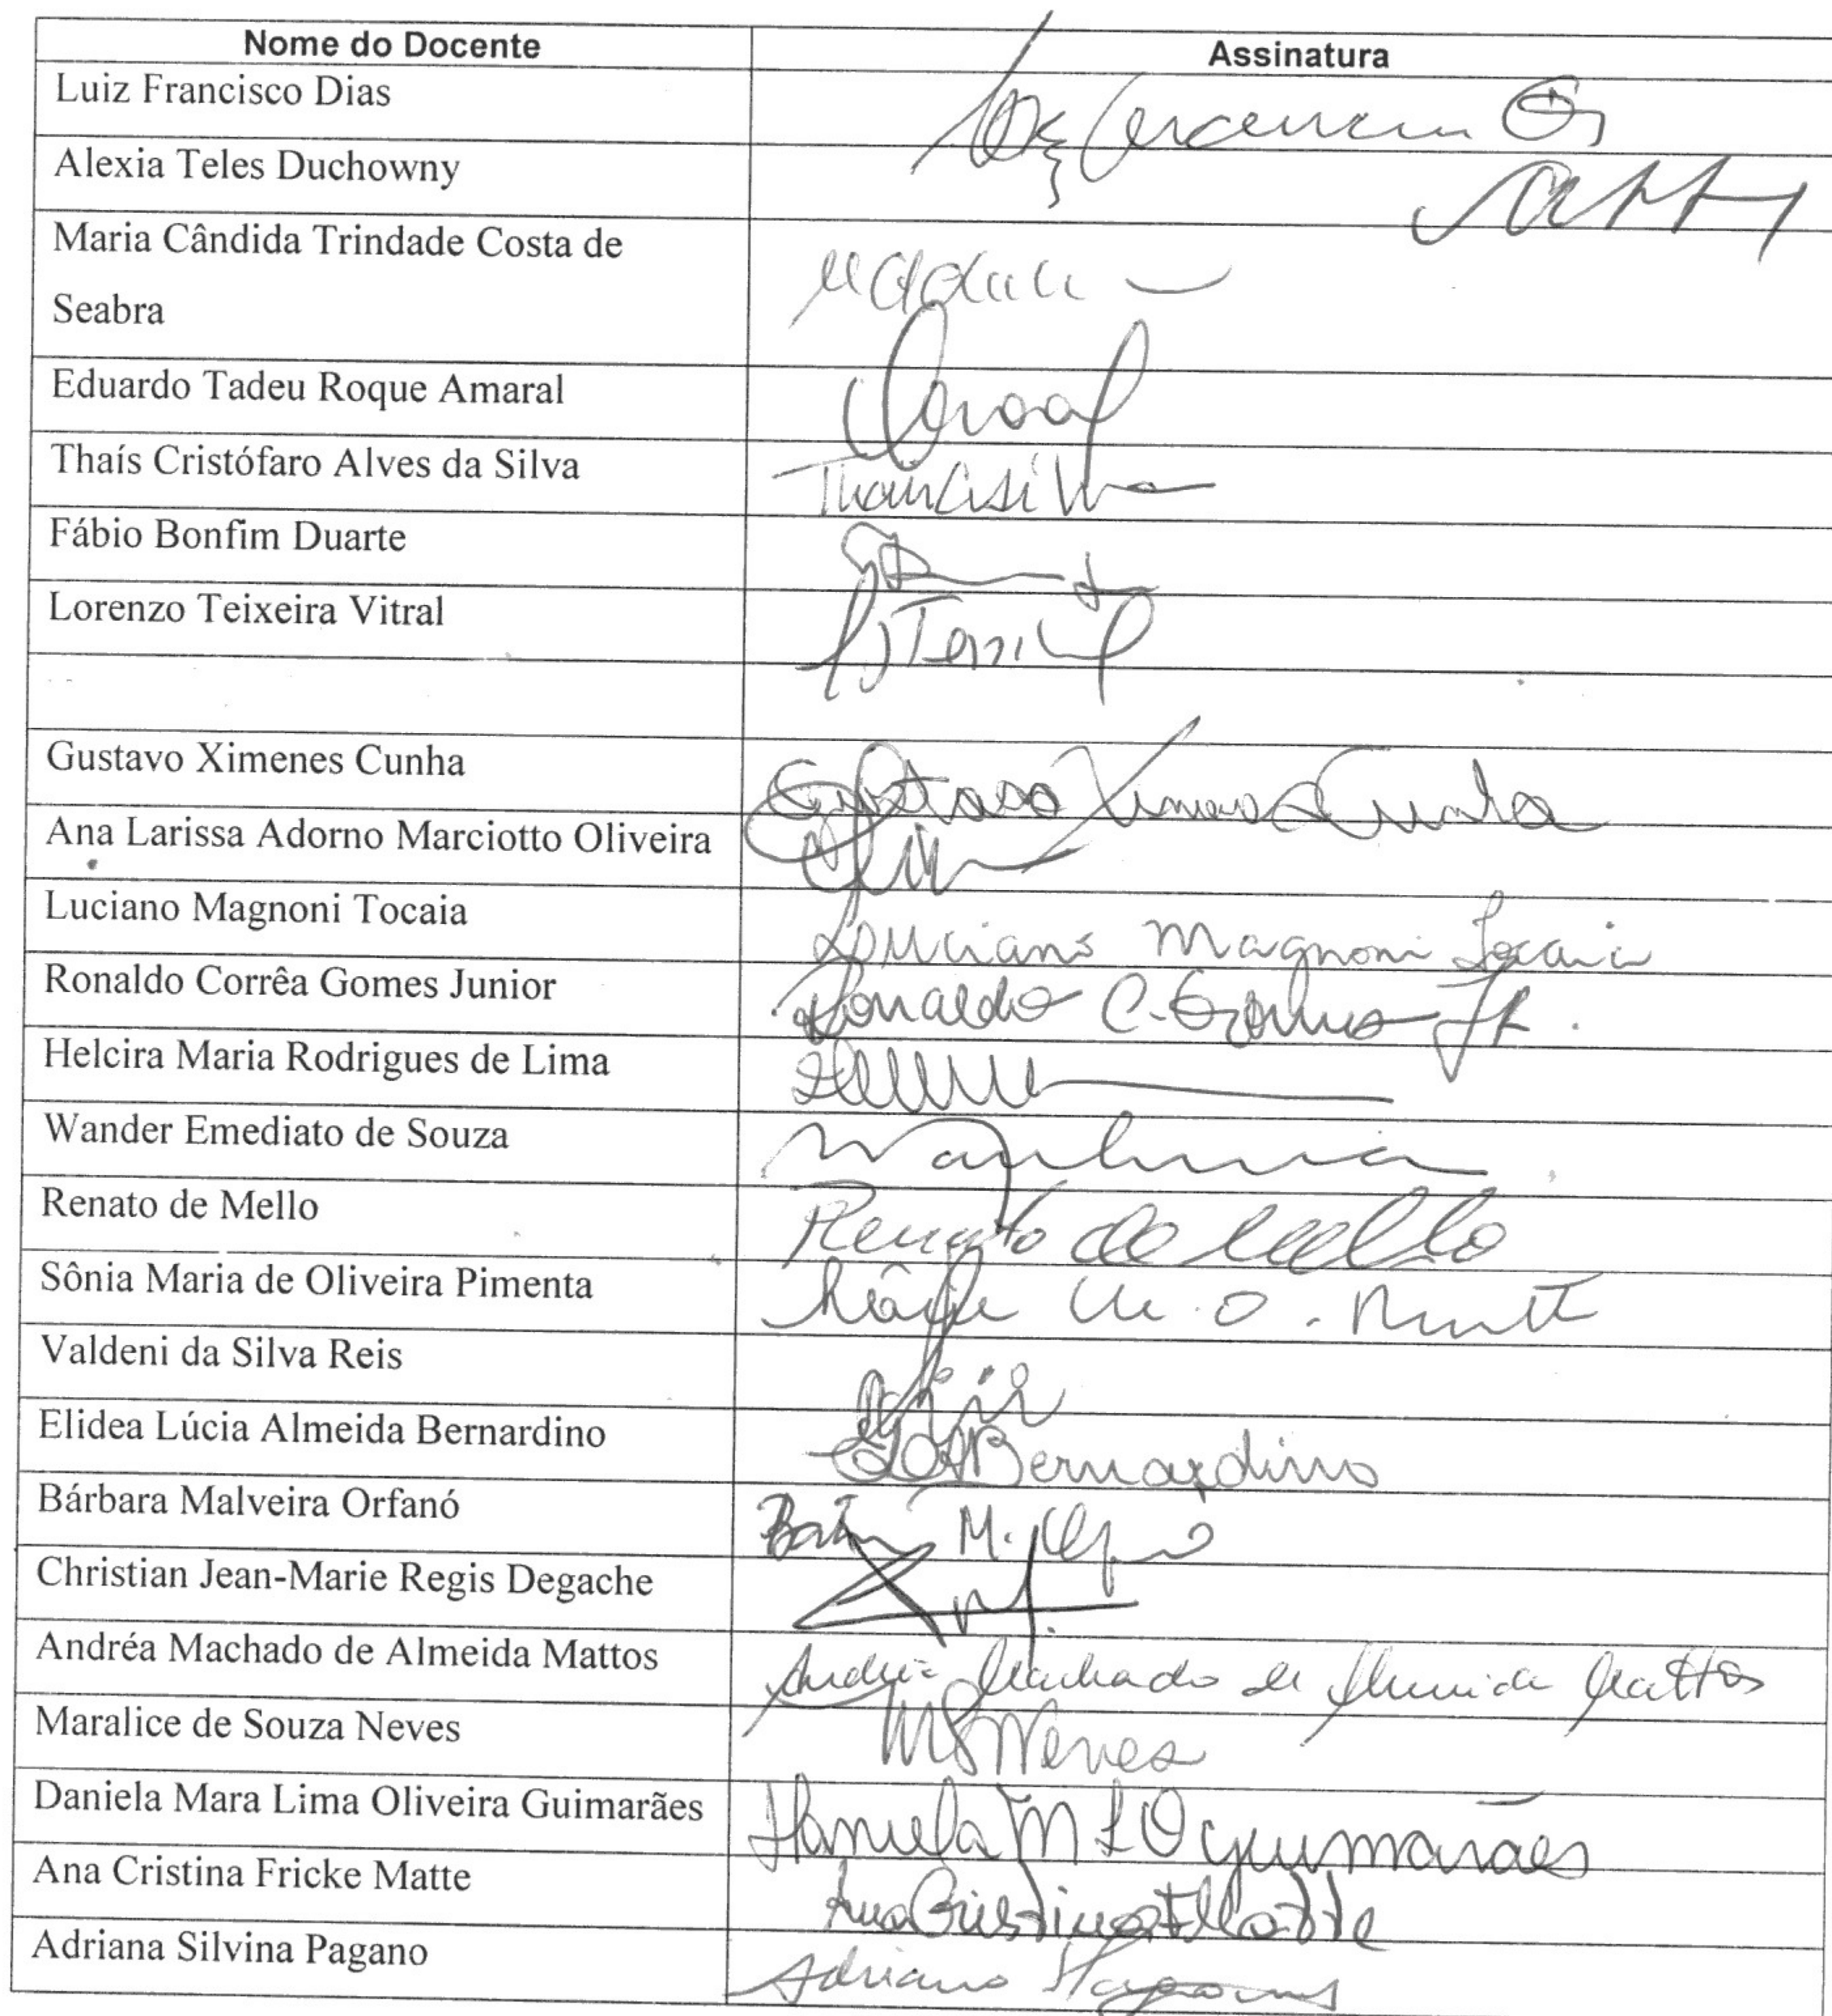 Nome do Docente Assinatura
Luiz Francisco Dias
Alexia Teles Duchowny
Maria Cândida Trindade Costa de
Seabra
Eduardo Tadeu Roque Amaral
Thaís Cristófaro Alves da Silva
Fábio Bonfim Duarte
Lorenzo Teixeira Vitral
Gustavo Ximenes Cunha Gustavo Ximenes Cunha
Ana Larissa Adorno Marciotto Oliveira
Luciano Magnoni Tocaia Luciano Magnoni Tocaia
Ronaldo Corrêa Gomes Junior Ronaldo C. Gomes Jr.
Helcira Maria Rodrigues de Lima
Wander Emediato de Souza
Renato de Mello Renato de Mello
Sônia Maria de Oliveira Pimenta
Valdeni da Silva Reis
Elidea Lúcia Almeida Bernardino Bernardino
Bárbara Malveira Orfanó
Christian Jean-Marie Regis Degache
Andréa Machado de Almeida Mattos Andréa Machado de Almeida Mattos
Maralice de Souza Neves MSNeves
Daniela Mara Lima Oliveira Guimarães Daniela M L O Guimarães
Ana Cristina Fricke Matte Ana Cristina F Matte
Adriana Silvina Pagano Adriana S Pagano